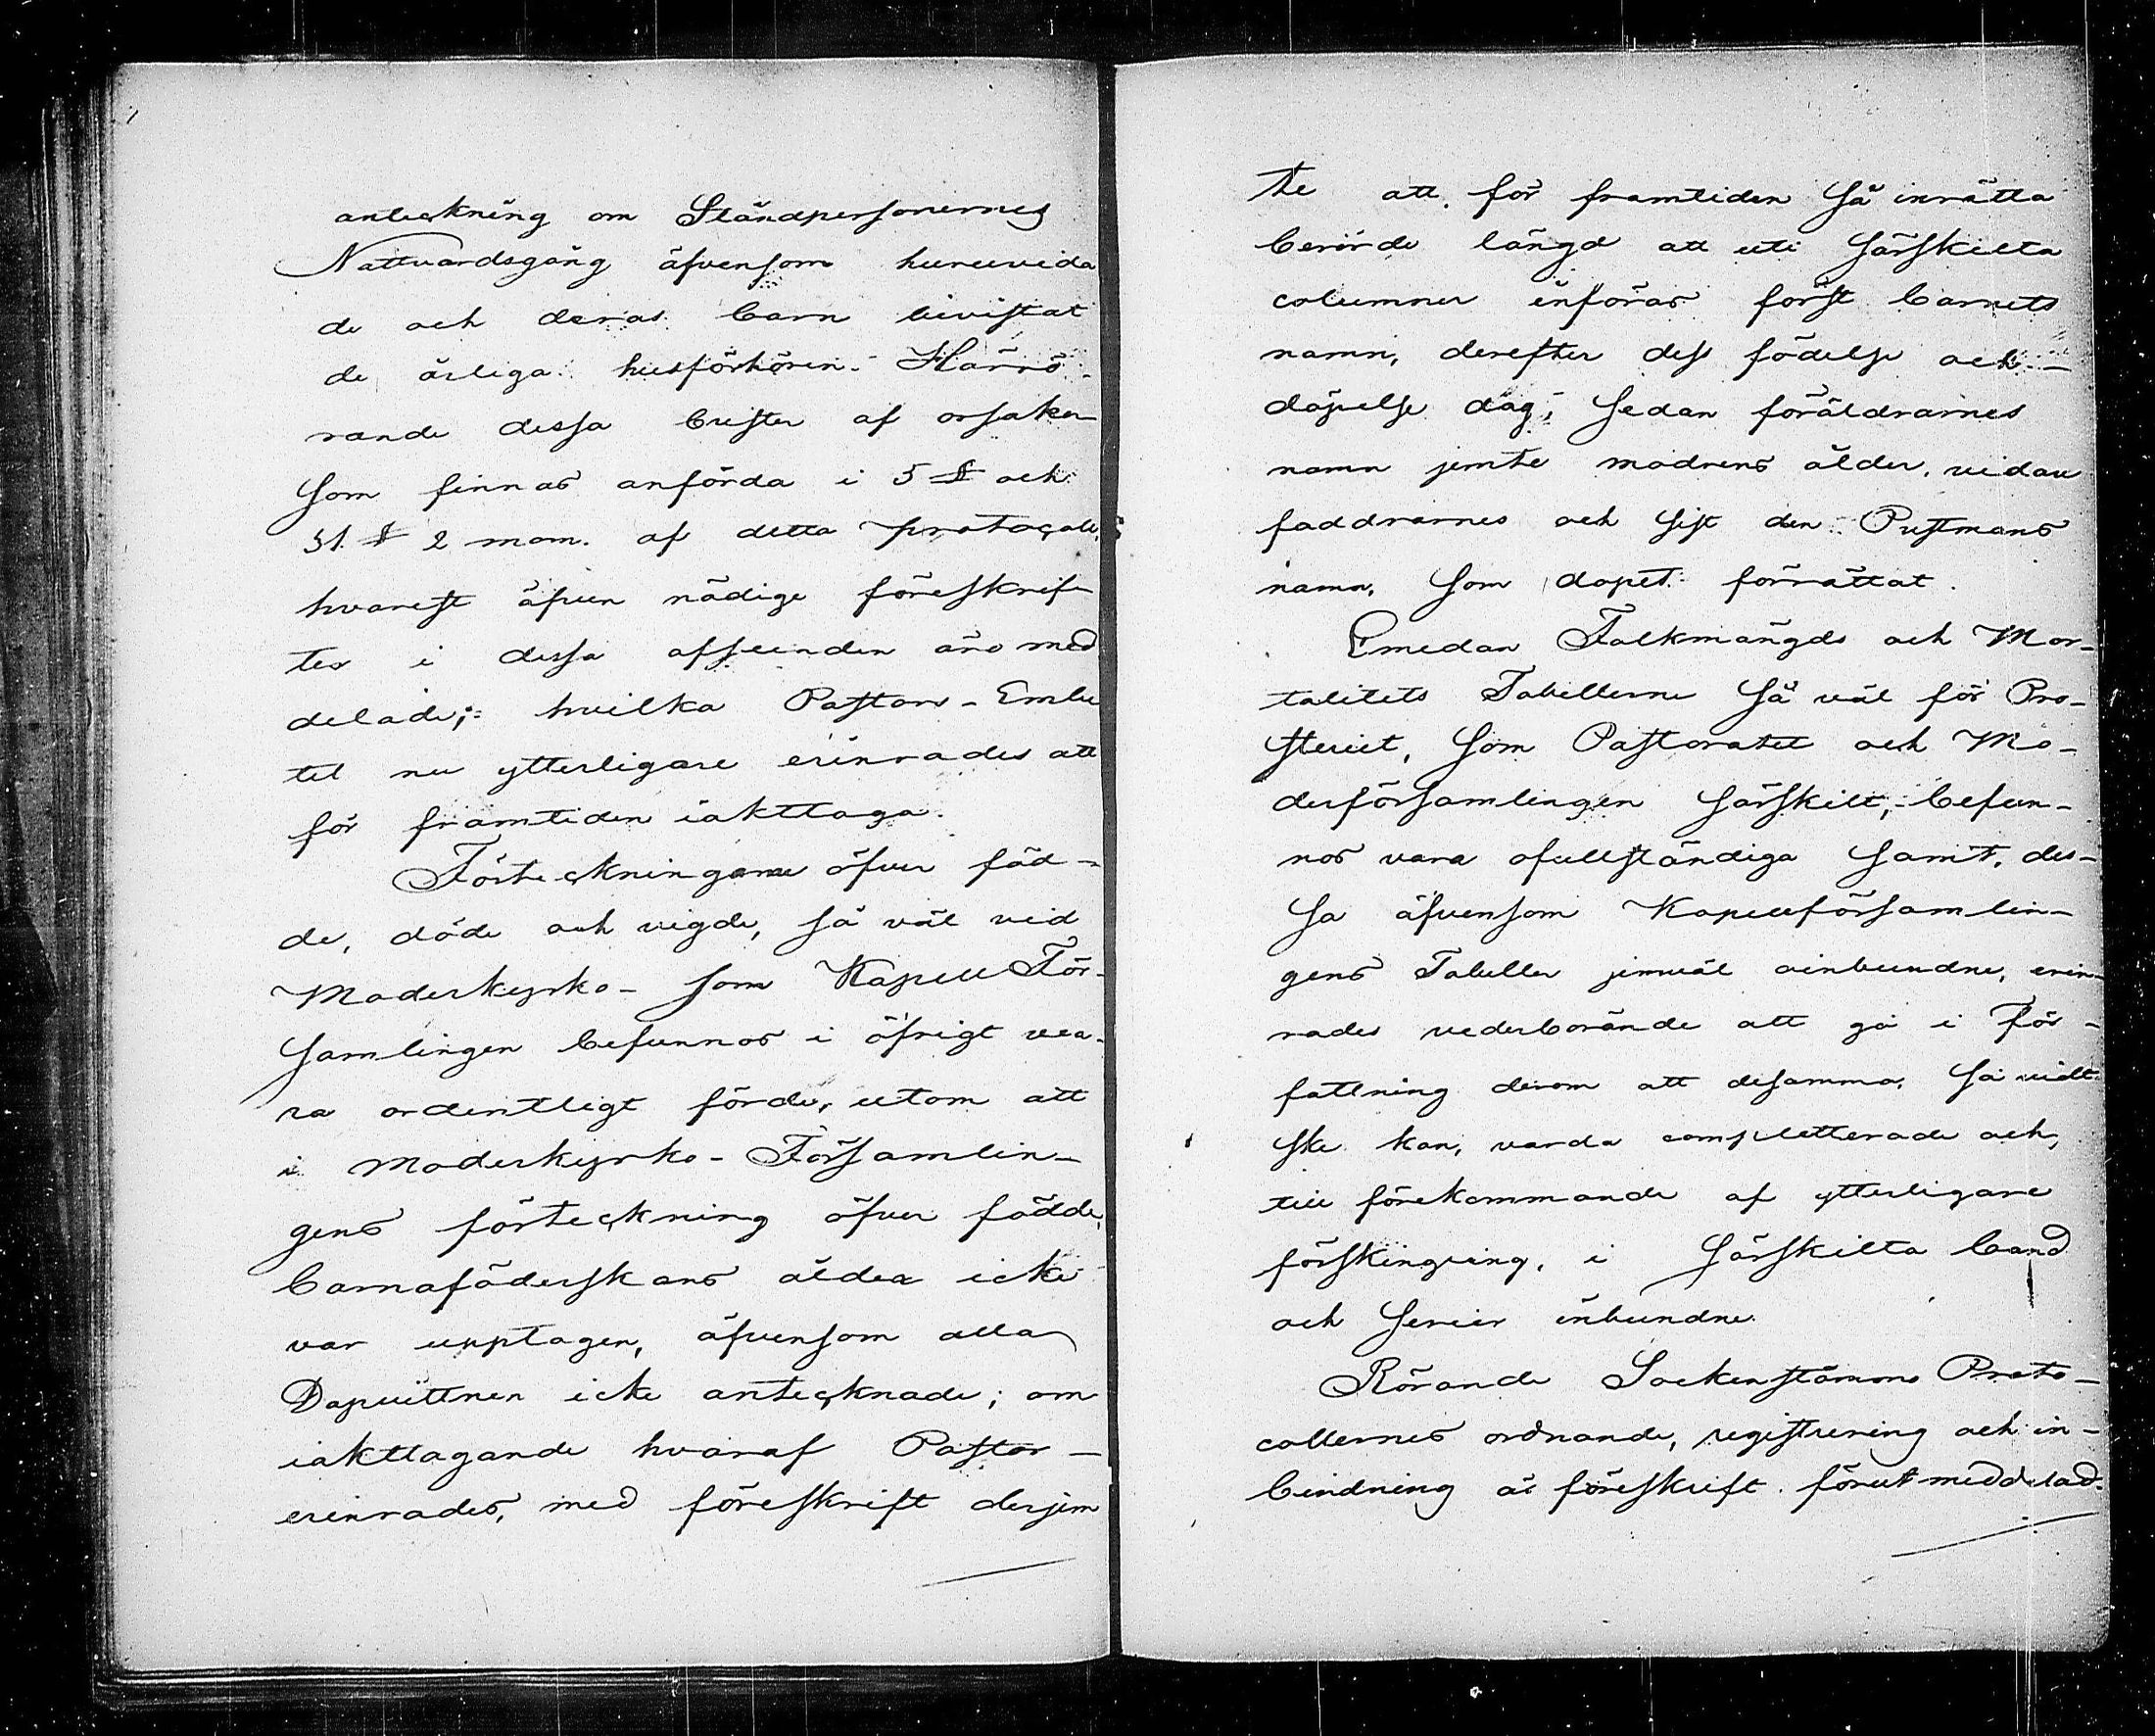 anteckning om Ståndspersonernes
Nattvardsgång äfvensom huruvida
de och deras barn bivistat
de årliga husförhören. Härrö-
rande dessa brister af orsaker
som finnas anförda i 5 § och
31. § 2 mom. af detta protocoll,
hvarest äfven nödige föreskrif-
ter i dessa afseenden äro med
delade; hvilka Pastors-Embe
tet nu ytterligare erinrades att
för framtiden iakttaga.
Förteckningarne öfver föd-
de, döde och vigde, så väl vid
Moderkyrko- som Kapell För-
samlingen befunnos i öfrigt va-
ra ordentligt förde, utom att
i Moderkyrko-Församlin-
gens förteckning öfver födde,
barnaföderskans ålder icke
var upptagen, äfvensom alla
Dopvittnen icke antecknade; om
iakttagande hvaraf Pastor
erinrades, med föreskrift derjem
te att för framtiden så inrätta
berörde längd att uti särskilta
columner införas först barnets
namn, derefter dess födelse och
döpelse dag, sedan föräldrarnes
namn jemte modrens ålder, vidare
faddrarnes och sist den Prestmans
namn, som dopet förrättat.
Emedan Folkmängds och Mor-
talitets Tabellerne så väl för Pro-
steriet, som Pastoratet och Mo-
derförsamlingen särskilt, befun-
nos vara ofullständiga samt, des-
sa äfvensom Kapellförsamlin-
gens Tabeller jemväl oinbundne, erin-
rades vederbörande att gå i för-
fattning derom att desamma, så vidt
ske kan, varda completterade och,
till förekommande af ytterligare
förskingring, i särskilta band
och serier inbundne.
Rörande Sockenstämmo Proto-
collernes ordnande, registrering och in-
bindning är föreskrift förut meddelad.